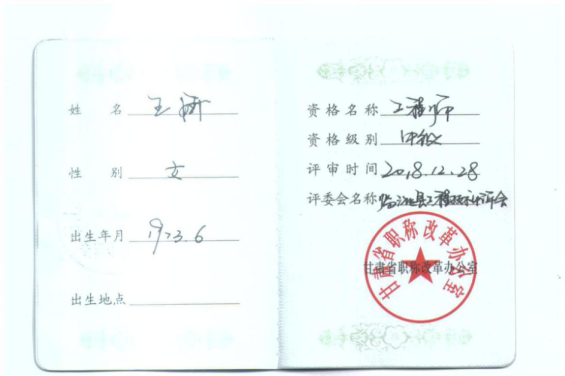 姓 名 王妍
性 别 女
出生年月 1973.6
出生地点
资格名称 工程师
资格级别 中级
评审时间 2018.12.28
评委会名称
甘肃省职称改革办公室
甘肃省职称改革办公室